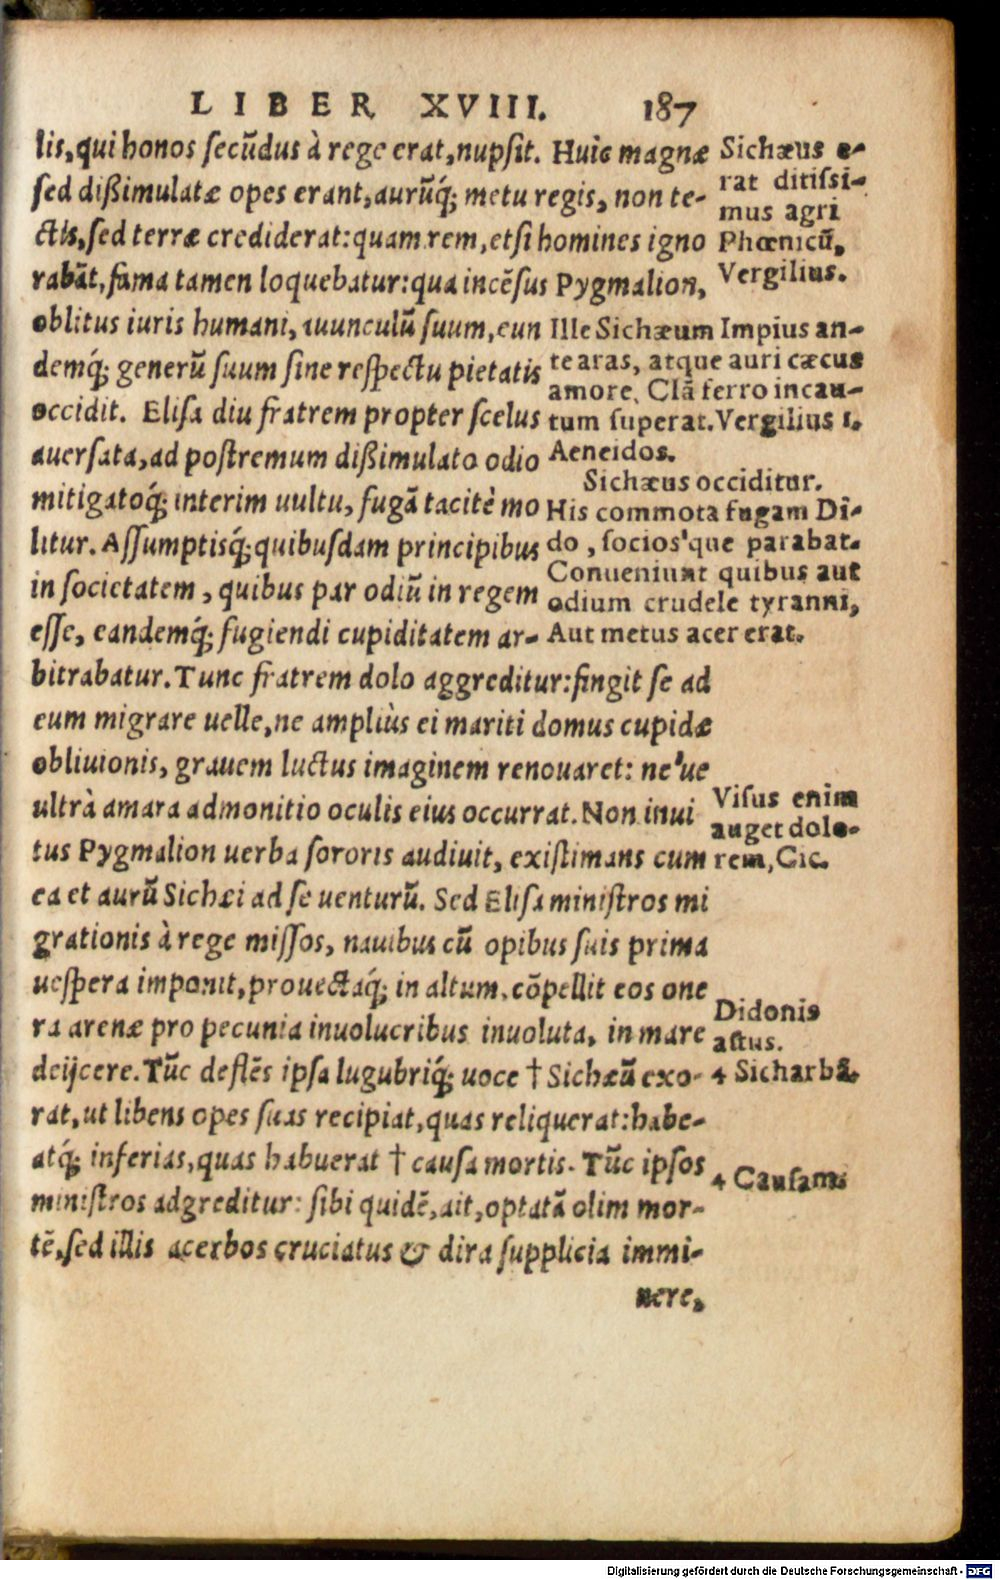 LIBER XVIII. 187
lis, qui honos secũdus à rege erat, nupsit. Huic magnæ
sed dißimulatæ opes erant, aurũq́; metu regis, non te-
ctis, sed terræ crediderat: quam rem, etsi homines igno
rabãt, fama tamen loquebatur: qua incẽsus Pygmalion,
oblitus iuris humani, auunculũ suum, eun
demq́; generũ suum sine respectu pietatis
occidit. Elisa diu fratrem propter scelus
auersata, ad postremum dißimulato odio
mitigatoq́; interim uultu, fugã tacitè mo
litur. Assumptisq́; quibusdam principibus
in societatem, quibus par odiũ in regem
esse, eandemq́; fugiendi cupiditatem ar-
bitrabatur. Tunc fratrem dolo aggreditur: fingit se ad
eum migrare uelle, ne ampliùs ei mariti domus cupidæ
obliuionis, grauem luctus imaginem renouaret: ne'ue
ultrà amara admonitio oculis eius occurrat. Non inui
tus Pygmalion uerba sororis audiuit, existimans cum
ea et aurũ Sichæi ad se uenturũ. Sed Elisa ministros mi
grationis à rege missos, nauibus cũ opibus suis prima
uespera imponit, prouectaq́; in altum, cõpellit eos one
ra arenæ pro pecunia inuolucribus inuoluta, in mare
deijcere. Tũc deflẽs ipsa lugubriq́; uoce † Sichæũ exo-
rat, ut libens opes suas recipiat, quas reliquerat: habe-
atq́; inferias, quas habuerat † causa mortis. Tũc ipsos
ministros adgreditur: sibi quidẽ, ait, optatã olim mor-
tẽ, sed illis acerbos cruciatus & dira supplicia immi-
nere,
Sichæus e-
rat ditissi-
mus agri
Phœnicũ,
Vergilius.
Ille Sichæum Impius an-
te aras, atque auri cæcus
amore, Clã ferro incau-
tum superat. Vergilius 1.
Aeneidos.
Sichæus occiditur.
His commota fugam Di-
do, socios'que parabat.
Conueniunt quibus aut
odium crudele tyranni,
Aut metus acer erat.
Visus enim
auget dolo-
rem, Cic.
Didonis
astus.
4 Sicharbã.
4 Causam
Digitalisierung gefördert durch die Deutsche Forschungsgemeinschaft - DFG